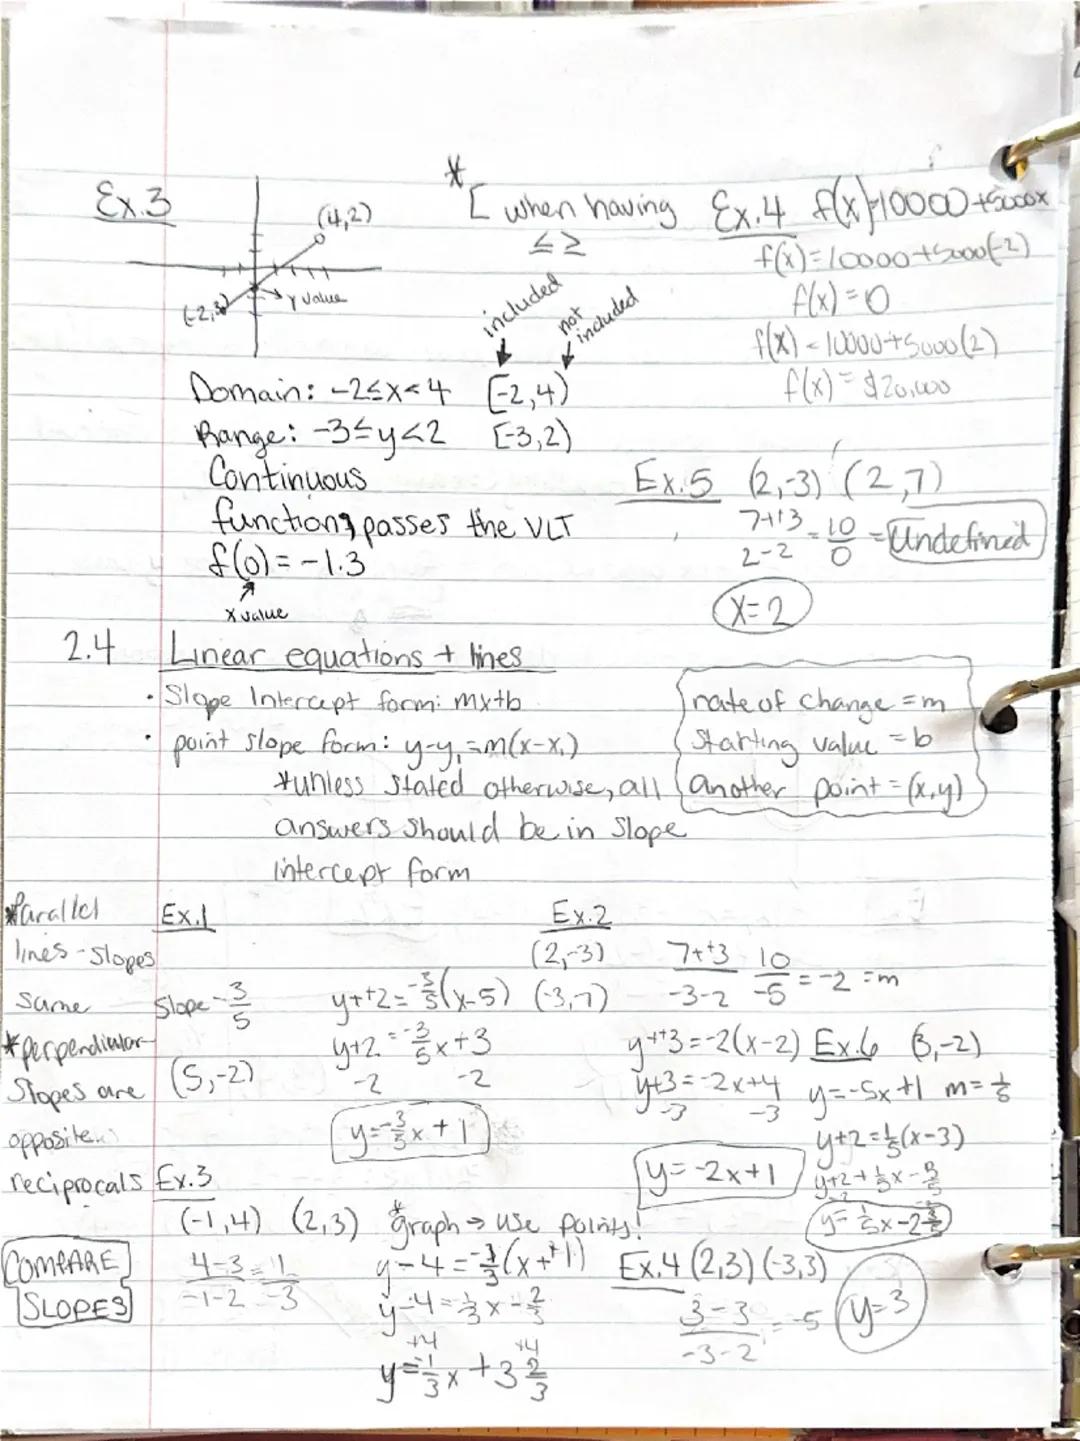 Ex.3
(4,2)
(-2,3)
y value
Domain: -2≤x<4 [-2,4)
Range: -3≤y<2 [-3,2)
Continuous
function, passes the VLT
f(0) = -1.3
x value
*
[ when having
≤ ≥
included
not included
Ex.4 f(x)=10000+5000x
f(x)=10000+5000(-2)
f(x)=0
f(x)=10000+5000(2)
f(x)=$20,000
Ex.5 (2,-3) (2,7)
7+3/2-2 = 10/0 = Undefined
x=2
2.4 Linear equations + lines
· Slope Intercept form: mx+b
· point slope form: y-y₁=m(x-x₁)
*unless stated otherwise, all
answers should be in slope
intercept form
rate of change = m
starting value = b
another point = (x,y)
*Parallel
lines - slopes
same
*perpendicular-
slopes are
opposite
reciprocals
COMPARE
SLOPES
Ex.1
Slope -3/5
(5,-2)
y++2=-3/5(x-5)
y+2=-3/5x+3
-2 -2
y=-3/5x+1
Ex.2
(2,-3)
(-3,7)
7++3/-3-2 10/-5 = -2 = m
y++3=-2(x-2)
y+3=-2x+4
-3 -3
y=-2x+1
Ex.6 (3,-2)
y=-5x+1 m=1/5
y+2=1/5(x-3)
y+2+1/5x-3/5
-2
y=1/5x-2 3/5
Ex.3
(-1,4) (2,3)
4-3/-1-2 = 1/-3
*graph → use points!
y-4=-1/3(x++1)
+4 +4
y=-1/3x+3 2/3
Ex.4 (2,3) (-3,3)
3-3/-3-2 = -5
y=3